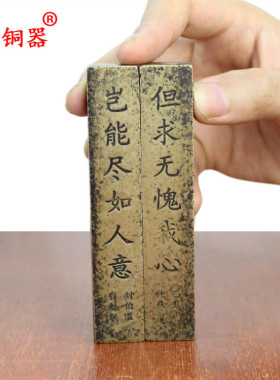 铜器®
但求无愧我心
岂能尽如人意
刘伯温
自勉联